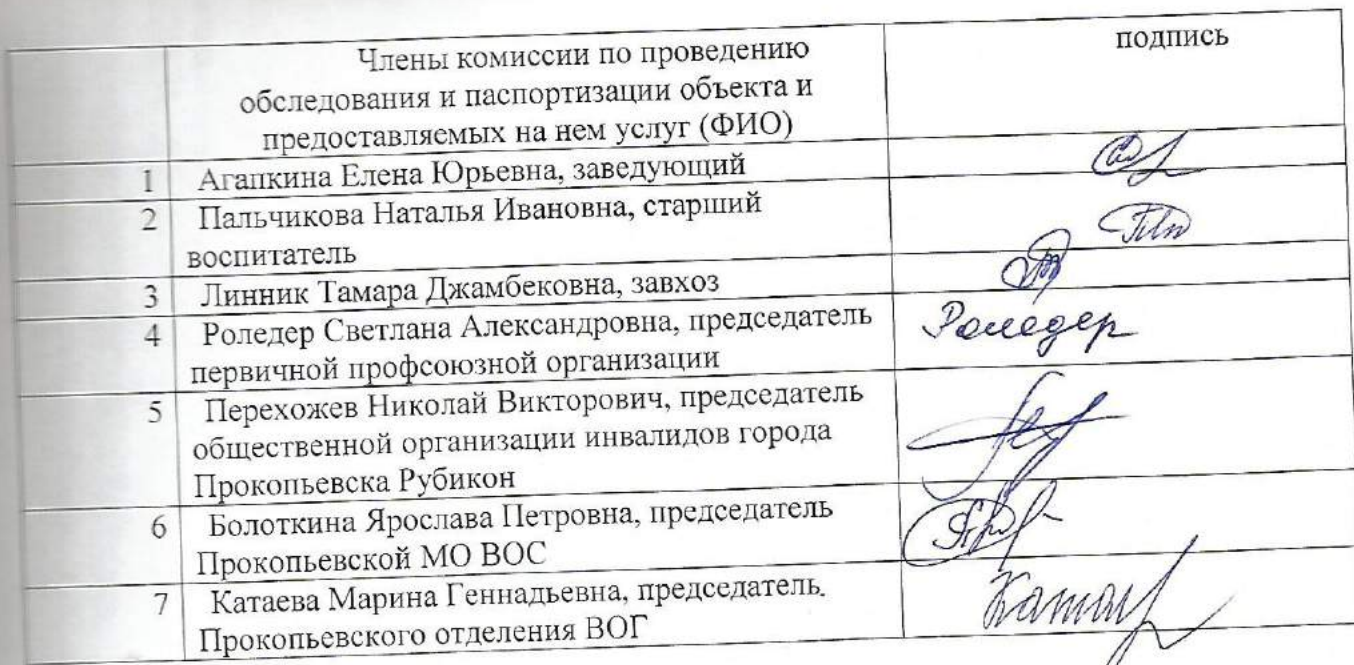 Члены комиссии по проведению
обследования и паспортизации объекта и
предоставляемых на нем услуг (ФИО)
подпись
1 Агапкина Елена Юрьевна, заведующий
2 Пальчикова Наталья Ивановна, старший
воспитатель
3 Линник Тамара Джамбековна, завхоз
4 Роледер Светлана Александровна, председатель
первичной профсоюзной организации
Роледер
5 Перехожев Николай Викторович, председатель
общественной организации инвалидов города
Прокопьевска Рубикон
6 Болоткина Ярослава Петровна, председатель
Прокопьевской МО ВОС
7 Катаева Марина Геннадьевна, председатель.
Прокопьевского отделения ВОГ